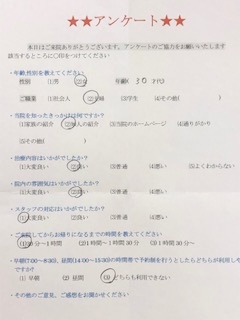 ★★アンケート★★
本日はご来院ありがとうございます。アンケートのご協力をお願いいたします
該当するところに○印をつけてください
・年齢,性別を教えてください
性別 (1)男 (2)女 年齢( 30 )代
ご職業 (1)社会人 (2)主婦 (3)学生 (4)その他( )
・当院を知ったきっかけは何ですか?
(1)家族の紹介 (2)友人の紹介 (3)当院のホームページ (4)通りがかり
(5)その他( )
・治療内容はいかがでしたか?
(1)大変良い (2)良い (3)普通 (4)悪い (5)よくわからない
・院内の雰囲気はいかがでしたか?
(1)大変良い (2)良い (3)普通 (4)悪い
・スタッフの対応はいかがでしたか?
(1)大変良い (2)良い (3)普通 (4)悪い
・ご来院してからお帰りになるまでの時間を教えてください
(1)30分～1時間 (2)1時間～1時間30分 (3)1時間30分～
・早朝(7:00～8:30)、昼間(14:00～15:30)の時間帯で予約制を行うとしたらどちらが利用しやすいですか?
(1) 早朝 (2) 昼間 (3) どちらも利用できない
・その他のご意見、ご感想をお聞かせください